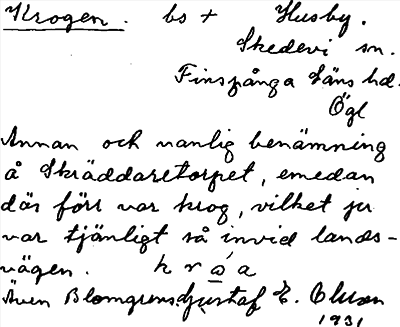 Krogen. bs + Husby.
Skedevi sn.
Finspånga läns hd.
Ögl
Annan och vanlig benämning
å Skräddaretorpet, emedan
där förr var krog, vilket ju
var tjänligt så invid lands-
vägen. k r ώ a
Även Blomgrens Gustaf E. Olsson
1931